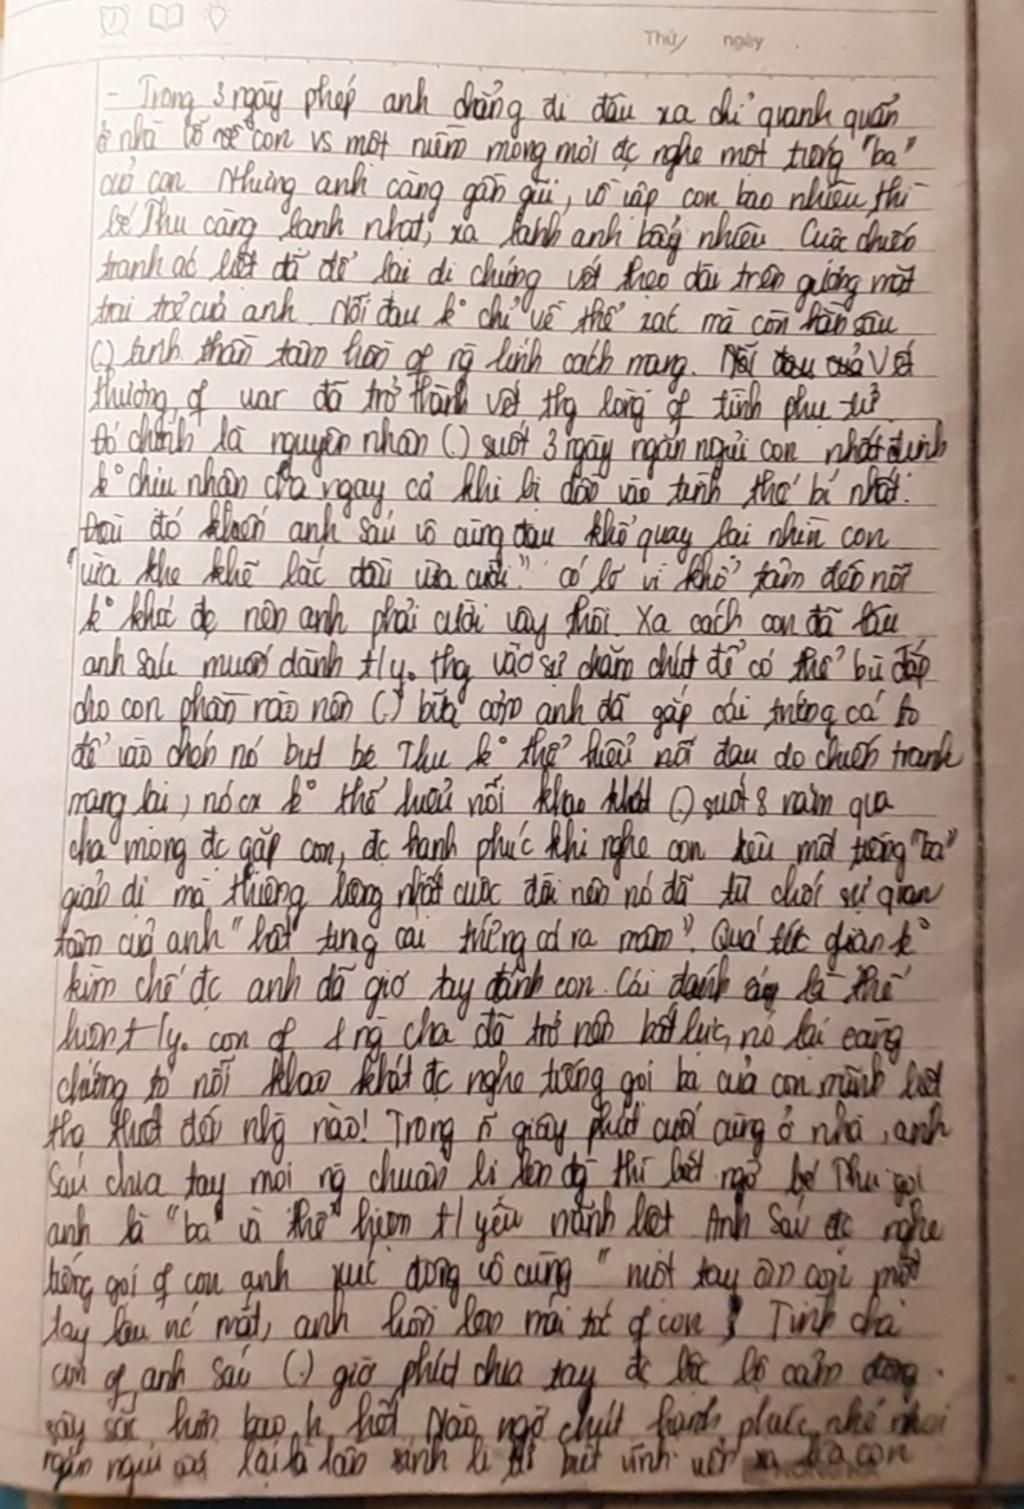 Thứ ngày
- Trong 3 ngày phép anh chẳng đi đâu xa chỉ quanh quẩn
ở nhà vỗ về con vs một niềm mong mỏi đc nghe một tiếng "ba"
của con. Nhưng anh càng gần gũi, vồ vập con bao nhiêu thì
bé Thu càng lạnh nhạt, xa lánh anh bấy nhiêu. Cuộc chiến
tranh ác liệt đã để lại di chứng vết thẹo dài trên gương mặt
trai trẻ của anh. Nỗi đau k° chỉ về thể xác mà còn hằn sâu
(.) tinh thần tâm hồn of ng lính cách mạng. Vết
thương of war đã trở thành vết thg lòng of tình phụ tử.
Đó chính là nguyên nhân (.) suốt 3 ngày ngắn ngủi con nhất định
k° chịu nhận cha ngay cả khi bị dồn vào tình thế bí nhất.
Điều đó khiến anh sáu vô cùng đau khổ quay lại nhìn con
"vừa khe khẽ lắc đầu vừa cười." có lẽ vì khổ tâm đến nỗi
k° khóc đc nên anh phải cười vậy thôi. Xa cách con đã lâu
anh sáu muốn dành t/y. thg vào sự chăm chút để có thể bù đắp
cho con phần nào nên (.) bữa cơm anh đã gắp cái trứng cá to
để vào chén nó but bé Thu k° thể hiểu nỗi đau do chiến tranh
mang lại, nó cx k° thể hiểu nỗi khao khát (.) suốt 8 năm qua
cha mong đc gặp con, đc hạnh phúc khi nghe con kêu một tiếng "ba"
giản dị mà thiêng liêng nhất cuộc đời nên nó đã từ chối sự quan
tâm của anh "hất tung cái trứng cá ra mâm". Quá tức giận k°
kìm chế đc anh đã giơ tay đánh con. Cái đánh ấy là thể
hiện t/y. con of 1 ng cha đã trở nên bất lực, nó lại càng
chứng tỏ nỗi khao khát đc nghe tiếng gọi ba của con mình biết
thiết đến nhg nào! Trong giây phút cuối cùng ở nhà, anh
Sáu chia tay mọi ng chuẩn bị lên đg thì bất ngờ bé Thu gọi
anh là "ba" và thể hiện t/ yêu mãnh liệt. Anh Sáu đc nghe
tiếng gọi of con anh xúc động vô cùng "một tay ôm con một
tay lau nc mắt, anh hôn lên mái tóc of con". Tình cha
con of anh Sáu (.) giờ phút chia tay đc bộc lộ cảm động
sâu sắc hơn bao h hết. Nào ngờ chút hạnh phúc nhỏ nhoi
ngắn ngủi lại là lần